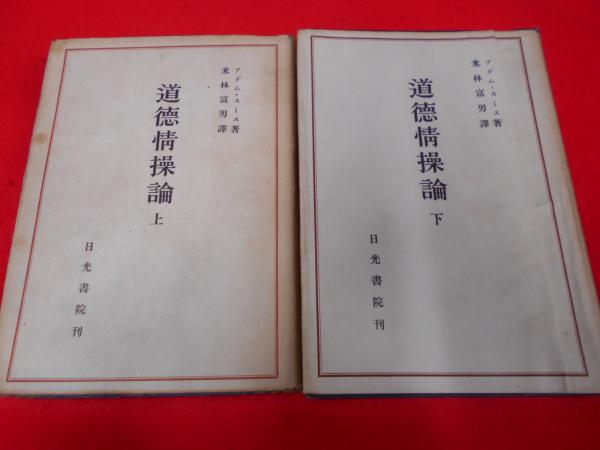 アダム・スミス著
米林富男譯
道德情操論
上
日光書院刊
アダム・スミス著
米林富男譯
道德情操論
下
日光書院刊